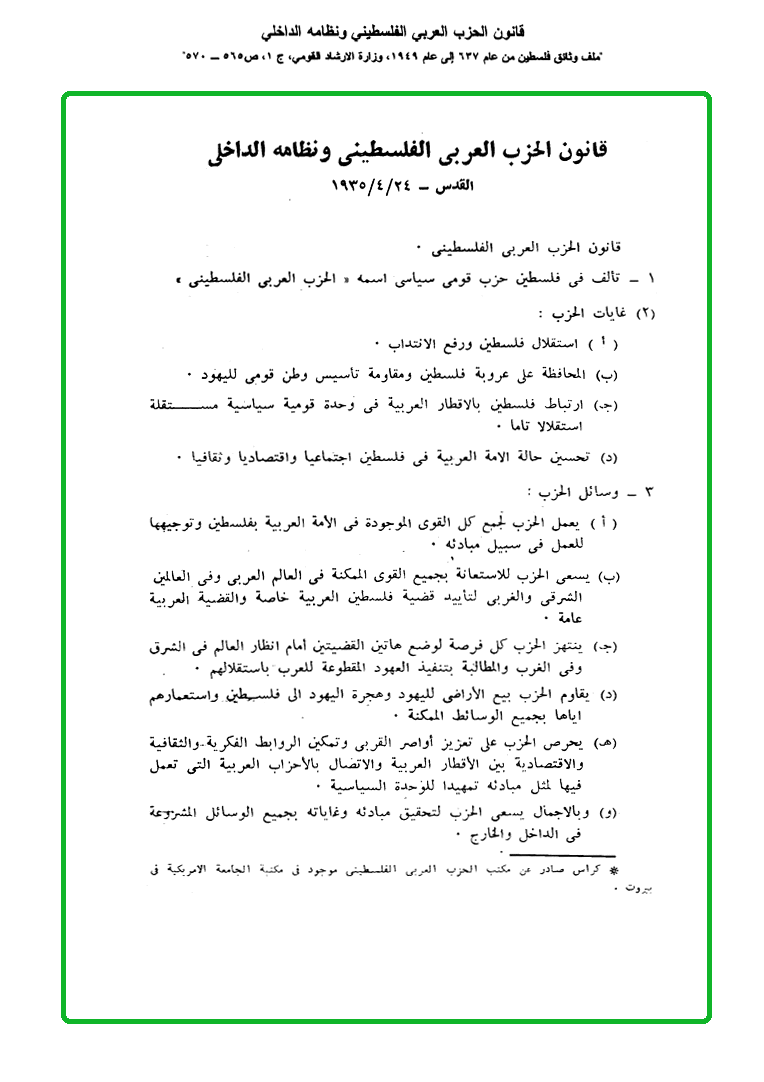 قانون الحزب العربي الفلسطيني ونظامه الداخلي
"ملف وثائق فلسطين من عام ٦٣٧ إلى عام ١٩٤٩، وزارة الارشاد القومي، ج ١، ص٥٦٥ – ٥٧٠"
قانون الحزب العربي الفلسطيني ونظامه الداخلي
القدس – ١٩٣٥/٤/٢٤
قانون الحزب العربى الفلسطينى ٠
١ – تألف فى فلسطين حزب قومى سياسى اسمه « الحزب العربى الفلسطينى »
(٢) غايات الحزب :
( أ ) استقلال فلسطين ورفع الانتداب ٠
(ب) المحافظة على عروبة فلسطين ومقاومة تأسيس وطن قومى لليهود ٠
(جـ) ارتباط فلسطين بالاقطار العربية فى وحدة قومية سياسية مستقلة
استقلالا تاما ٠
(د) تحسين حالة الامة العربية فى فلسطين اجتماعيا واقتصاديا وثقافيا ٠
٣ – وسائل الحزب :
( أ ) يعمل الحزب لجمع كل القوى الموجودة فى الأمة العربية بفلسطين وتوجيهها
للعمل فى سبيل مبادئه ٠
(ب) يسعى الحزب للاستعانة بجميع القوى الممكنة فى العالم العربى وفى العالمين
الشرقى والغربى لتأييد قضية فلسطين العربية خاصة والقضية العربية
عامة ٠
(جـ) ينتهز الحزب كل فرصة لوضع هاتين القضيتين أمام انظار العالم فى الشرق
وفى الغرب والمطالبة بتنفيذ العهود المقطوعة للعرب باستقلالهم ٠
(د) يقاوم الحزب بيع الأراضى لليهود وهجرة اليهود الى فلسطين واستعمارهم
اياها بجميع الوسائط الممكنة ٠
(هـ) يحرص الحزب على تعزيز أواصر القربى وتمكين الروابط الفكرية والثقافية
والاقتصادية بين الأقطار العربية والاتصال بالأحزاب العربية التى تعمل
فيها لمثل مبادئه تمهيدا للوحدة السياسية ٠
(و) وبالاجمال يسعى الحزب لتحقيق مبادئه وغاياته بجميع الوسائل المشروعة
فى الداخل والخارج ٠
* كراس صادر عن مكتب الحزب العربى الفلسطينى موجود فى مكتبة الجامعة الامريكية فى
بيروت ٠